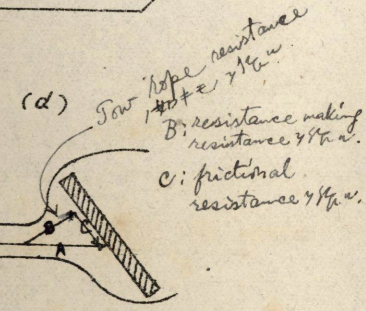 (d)
Tow rope resistance
B: resistance making
resistance
C: frictional
resistance
B
C
A